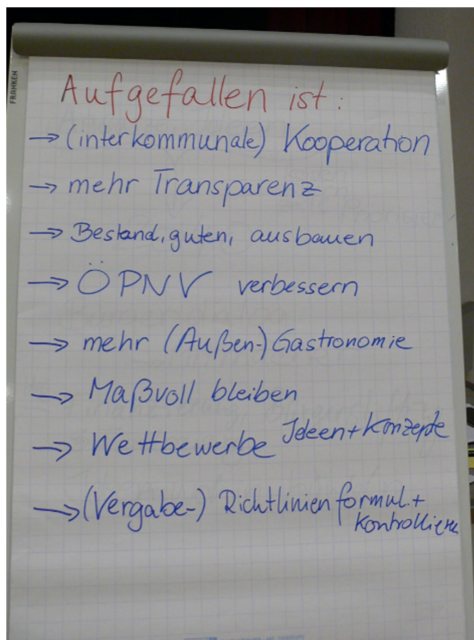 FRANKEN
Aufgefallen ist:
→ (interkommunale) Kooperation
→ mehr Transparenz
→ Bestand, guten, ausbauen
→ ÖPNV verbessern
→ mehr (Außen-) Gastronomie
→ Maßvoll bleiben
→ Wettbewerbe Ideen + Konzepte
→ (Vergabe-) Richtlinien formul. +
kontrollieren